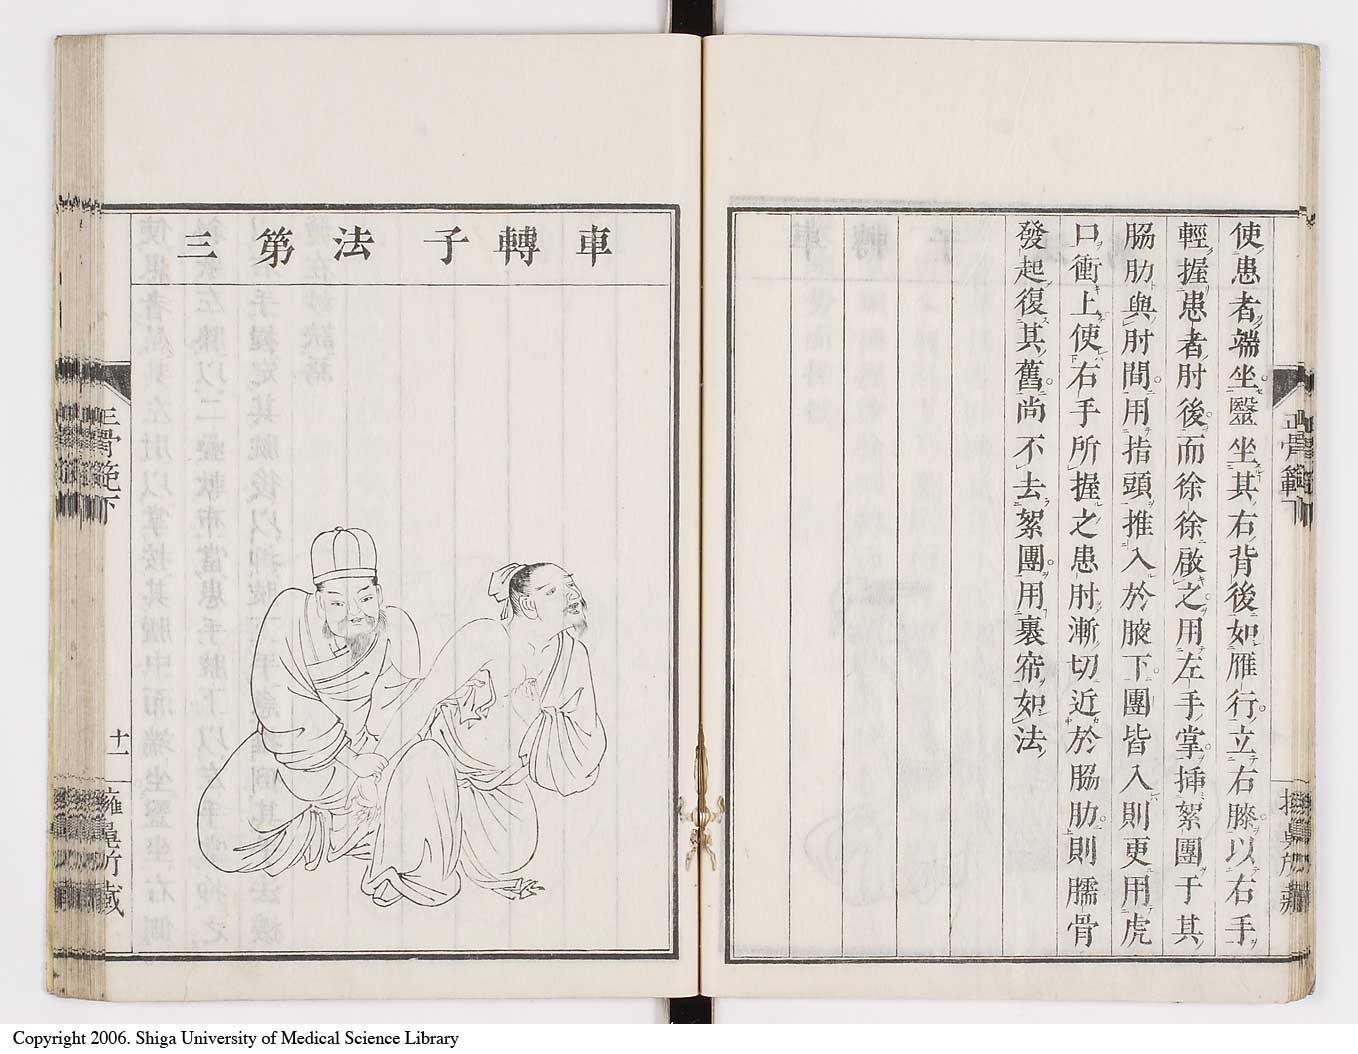 使患者端坐毉坐其右背後如雁行立右膝以右手
輕握患者肘後而徐徐啟之用左手掌揷絮團于其
脇肋與肘間用指頭推入於腋下團皆入則更用虎
口衝上使右手所握之患肘漸切近於脇肋則臑骨
發起復其舊尚不去絮團用裹帘如法
正骨範下
車轉子法第三
正骨範下
十一
Copyright 2006. Shiga University of Medical Science Library